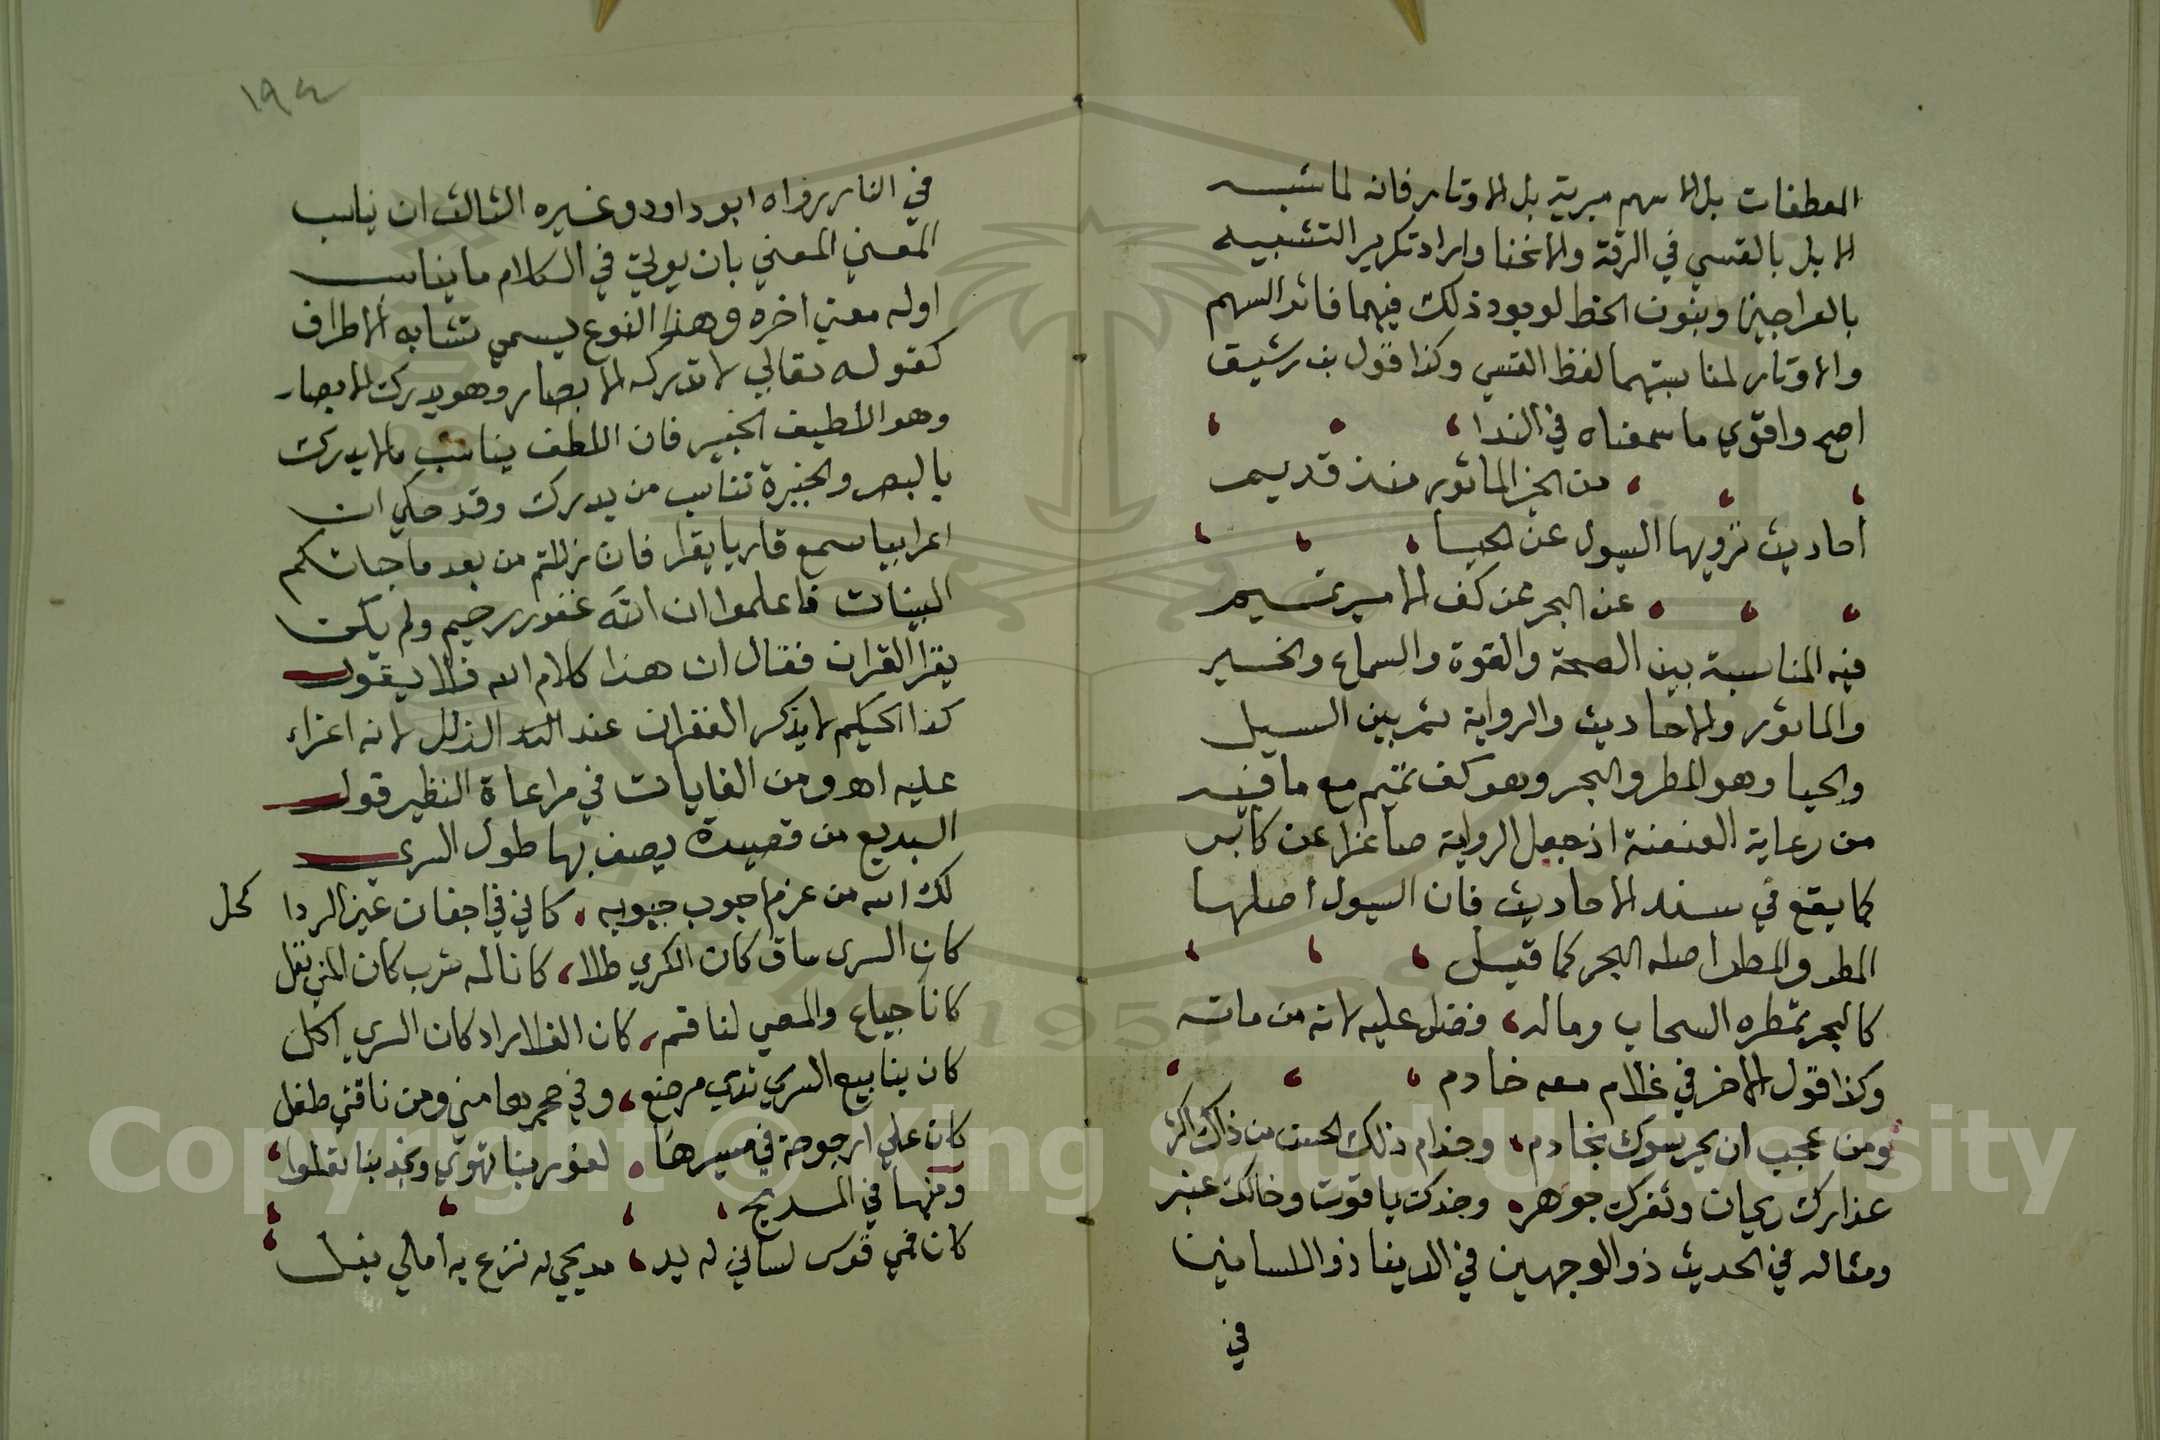 المعطفات بل الاسهم مبرية بل الاوتار فانه لما شبه
الابل بالقسي في الرقة والانحنا واراد تكرير التشبيه
بالعراجين وبنون الخط لوجود ذلك فيهما فاثر السهم
والاوتار لمناسبتهما لفظ القسي وكذا قول بن رشيق
اصح واقوي ما سمعناه في الندا
من الخبر الماثور منذ قديم
أحاديث ترويها السيول عن الحيا
عن البحر عن كف الامير تميم
فيه المناسبة بين الصحة والقوة والسماع والخبر
والماثور والاحاديث والرواية ثم بين السيل
والحيا وهو المطر والبحر وهو كف تميم مع ما فيه
من رعاية العنعنة اذ جعل الرواية صاغرا عن كابر
كما يقع في سند الاحاديث فان السيول اصلها
المطر والمطر اصله البحر كما قيل
كالبحر يمطره السحاب وماله فضل عليه لانه من مائه
وكذا قول الاخر في غلام معه خادم
ومن عجب ان يحرسوك بخادم وخدام ذلك الحسن من ذاك اكثر
عذارك ريحان وثغرك جوهر وخدك ياقوت وخالك عنبر
ومثاله في الحديث ذو الوجهين في الدينا ذو اللسانين
في
١٩٤
في النار رواه ابو داود وغيره الثالث ان يناسب
المعني المعني بان يولي في الكلام ما يناسب
اوله معني اخره وهذا النوع يسمي تشابه الاطراف
كقوله تعالي لا تدركه الابصار وهو يدرك الابصار
وهو اللطيف الخبير فان اللطف يناسب مالا يدرك
بالبصر والخبرة تناسب من يدرك وقد حكي ان
اعرابيا سمع قاريا يقرا فان زللتم من بعد ما جاتكم
البينات فاعلموا ان الله غفور رحيم ولم يكن
يقرا القران فقال ان هذا كلام الله فلا يقول
كذا الحكيم لا يذكر الغفران عند الزلل لانه اغراء
عليه اه ومن الغايات في مراعاة النظير قول
البديع من قصيدة يصف بها طول السري
لك الله من عزم اجوب جيوبه كاني في اجفان عين الردا كحل
كان السري ساق كان الكري طلا كانا له شرب كان المني نقل
كانا جياع والمطي لنا فم كان الفلا زاد كان السري اكل
كان ينابيع السري ثدي مرضع وفي حجرها مني ومن ناقتي طفل
كان علي ارجوحة في مسيرها لغور بنا تهوي ونجد بنا تعلوا
ومنها في المديح
كان فمي قوس لساني له يد مديحي له نزع به أملي نبل